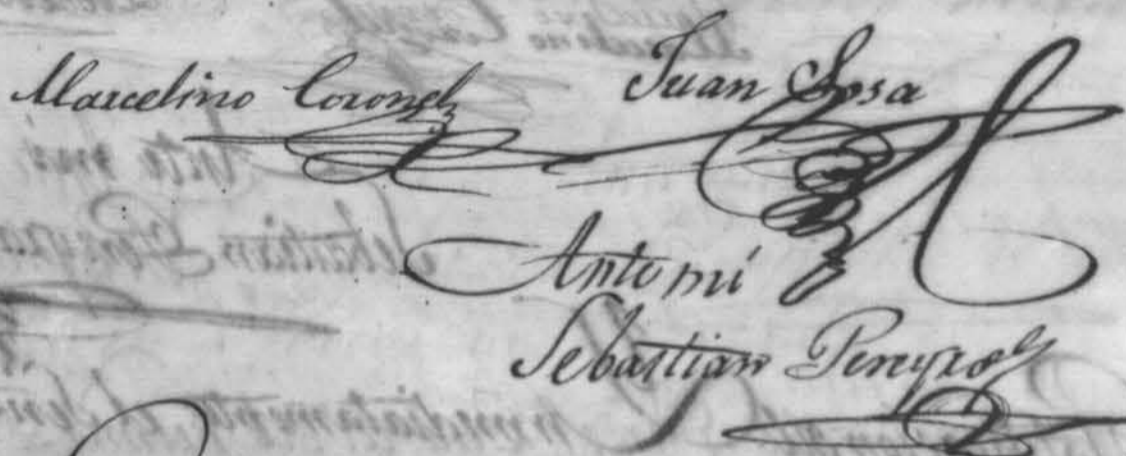 Marcelino Coronel Juan Sosa
Antemí
Sebastian Pereyra